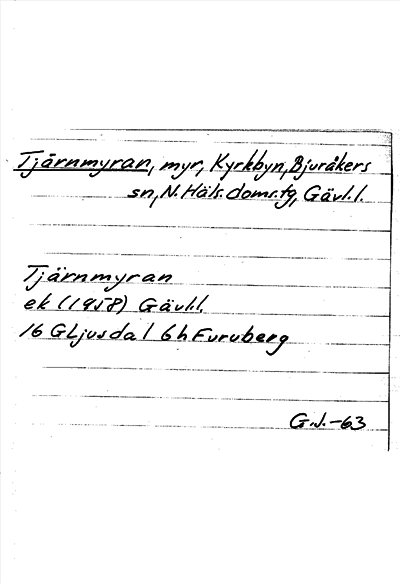 Tjärnmyran, myr, Kyrkbyn, Bjuråkers
sn, N. Häls. doms.tg, Gävl.l.
Tjärnmyran
ek (1958) Gävl.l.
16 G Ljusdal 6h Furuberg
G.J.-63